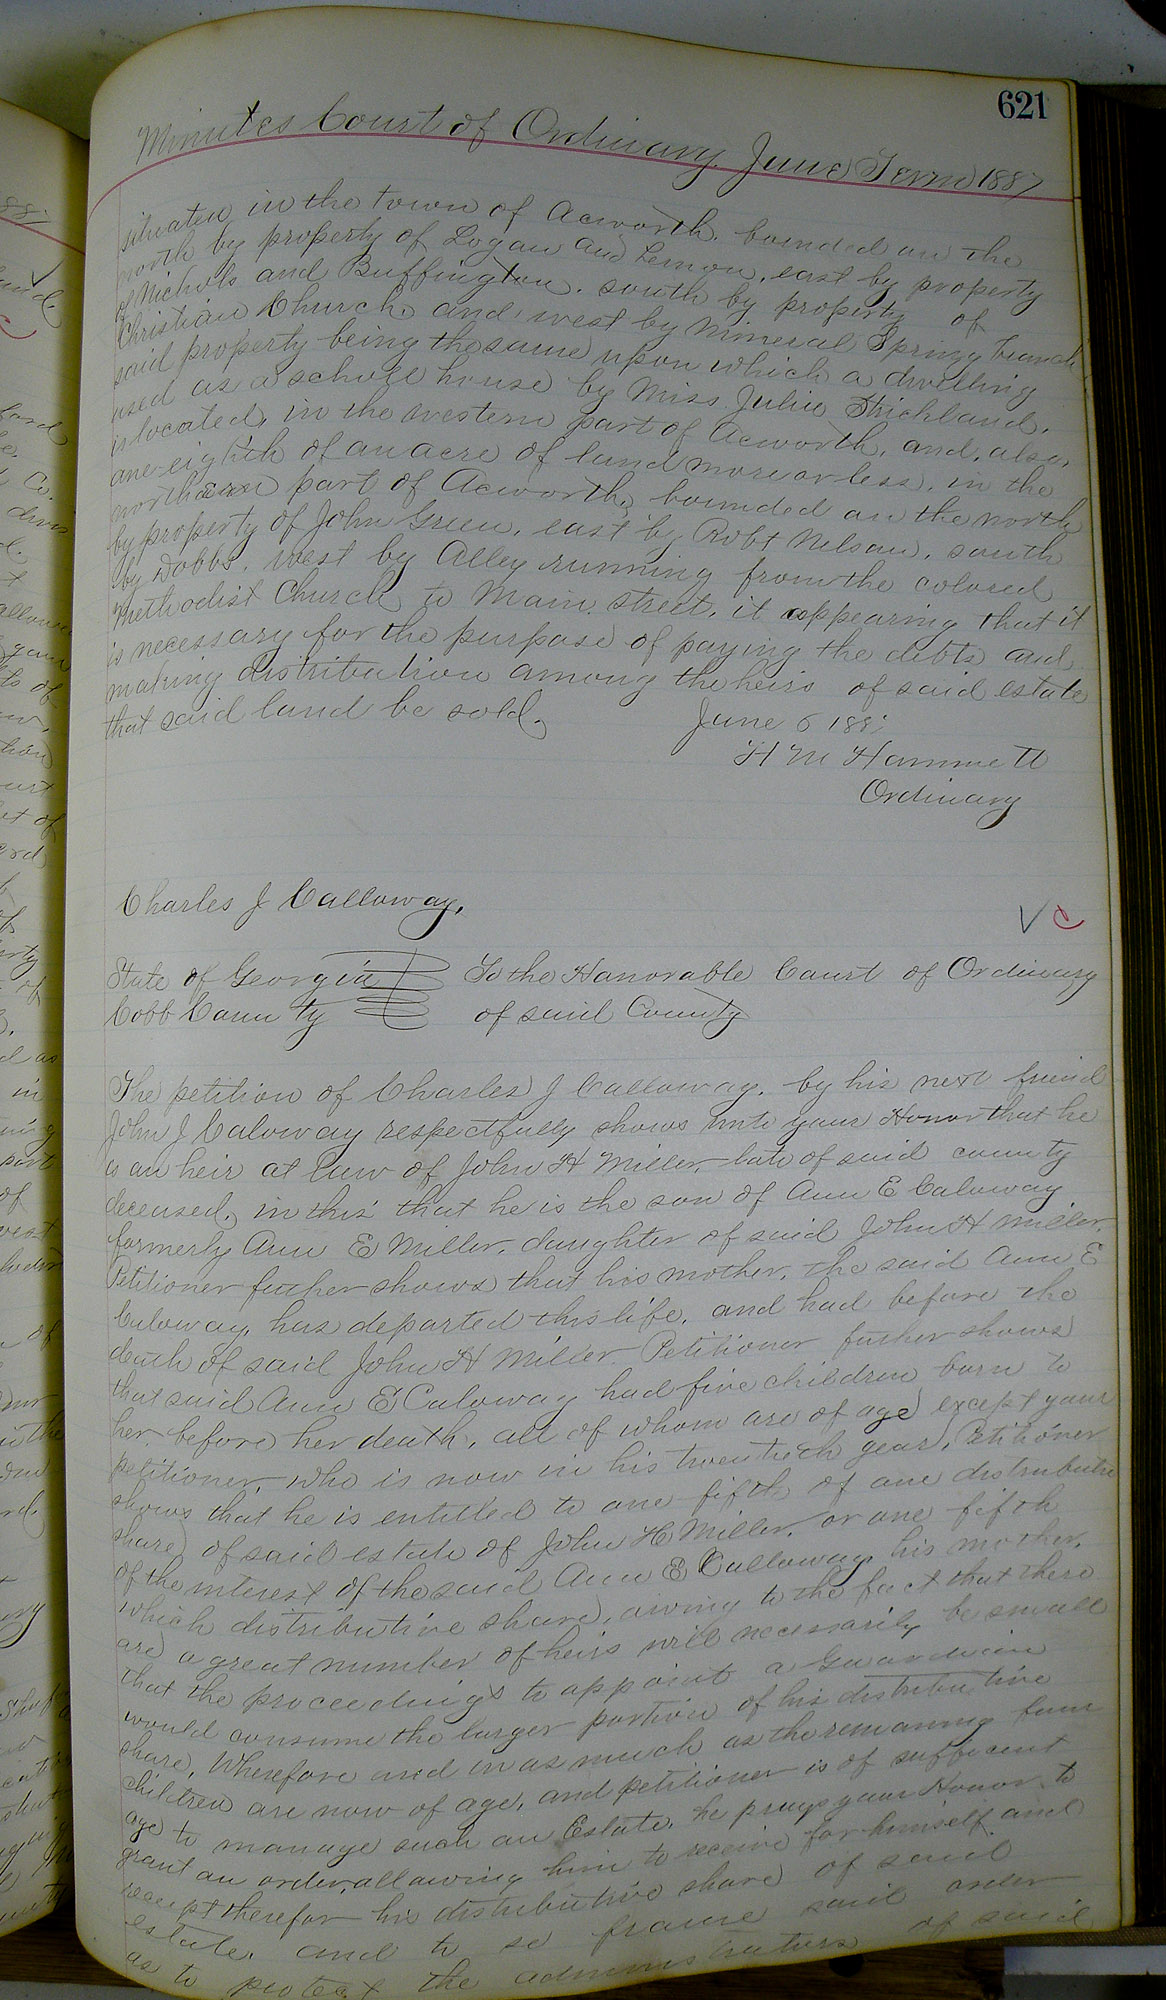 621
Minutes Court of Ordinary June Term 1887
situated in the town of Acworth. bounded on the
north by property of Logan and Lemon, east by property
of Nichols and Buffington. south by property of
Christian Church, and west by Mineral Spring branch
said property being the same upon which a dwelling
used as a school house by Miss Julia
is located, in the western part of Acworth, and, also,
one-eighth of an acre of land more or less, in the
northern part of Acworth, bounded on the north
by property of John Green, east by Robt Nelson, south
by Dobbs, west by Alley running from the colored
Methodist Church to Main street, it appearing that it
is necessary for the purpose of paying the debts and
making distribution among the heirs of said estate
that said land be sold.
June 6 188
H M Hammett
Ordinary
Charles J Calloway,
V C
State of Georgia To the Honorable Court of Ordinary
Cobb County of said County
The petition of Charles J Calloway, by his next friend
John J Caloway respectfully shows unto your Honor that he
is an heir at law of John H Miller, late of said county
deceased, in this that he is the son of Ann E Caloway
formerly Ann E Miller, daughter of said John H Miller.
Petitioner futher shows that his mother, the said Ann E
Caloway, has departed this life, and had before the
death of said John H Miller. Petitioner futher shows
that said Ann E Caloway had five children born to
her before her death, all of whom are of age except your
petitioner, who is now in his twentieth year, Petitioner
shows that he is entitled to one fifth of one distributive
share of said estate of John H Miller, or one fifth
of the interest of the said Ann E Calloway his mother,
which distributive share, owing to the fact that there
are a great number of heirs will necessarily be small
that the proceedings to appoint a Guardian
would consume the larger portion of his distributive
share, Wherefore and in as much as the remaning four
children are now of age, and petitioner is of sufficent
age to manage such an Estate, he prays your Honor to
grant an order, allowing him to receive for himself and
receipt therefor his distributive share of said
estate, and to so frame said order
as to protect the administrators of said